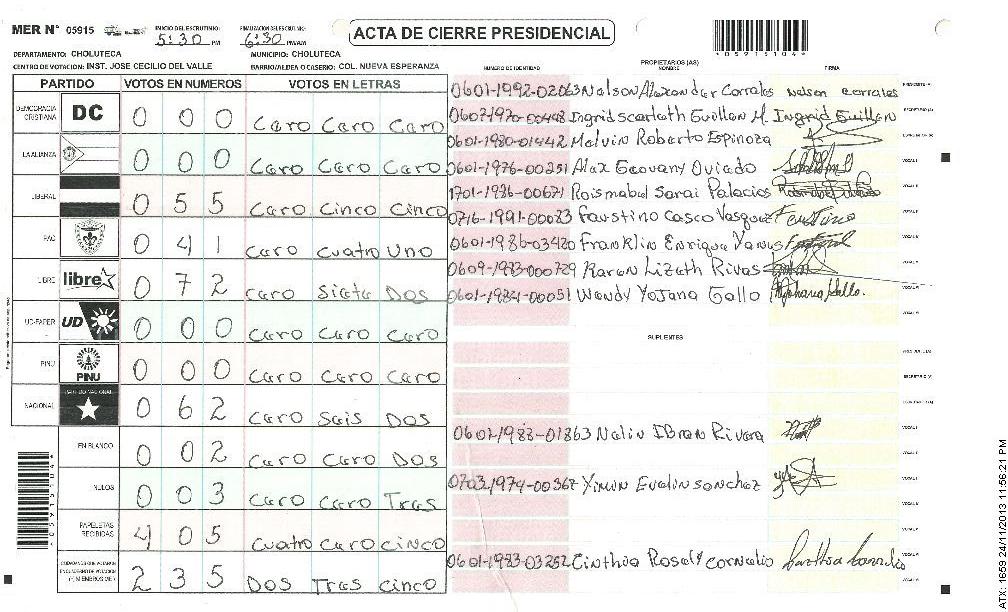 MER N° 05915 INICIO DEL ESCRUTINIO: 5:30 PM FINALIZACION DEL ESCRUTINIO: 6:30 PM/AM ACTA DE CIERRE PRESIDENCIAL
05915104
DEPARTAMENTO: CHOLUTECA MUNICIPIO: CHOLUTECA
CENTRO DE VOTACIÓN: INST. JOSE CECILIO DEL VALLE BARRIO/ALDEA O CASERIO: COL. NUEVA ESPERANZA
PARTIDO VOTOS EN NUMEROS VOTOS EN LETRAS
DEMOCRACIA CRISTIANA DC 0 0 0 Caro Caro Caro
LA ALIANZA 0 0 0 Caro Caro Caro
LIBERAL 0 5 5 Caro Cinco Cinco
PAC 0 4 1 Caro Cuatro Uno
LIBRE libre 0 7 2 Caro Siete Dos
UD-FAPER UD 0 0 0 Caro Caro Caro
PINU PINU 0 0 0 Caro Caro Caro
NACIONAL PARTIDO NACIONAL 0 6 2 Caro Sais Dos
EN BLANCO 0 0 2 Caro Caro Dos
NULOS 0 0 3 Caro Caro Tras
PAPELETAS RECIBIDAS 4 0 5 Cuatro Caro Cinco
2 3 5 Dos Tras Cinco
NUMERO DE IDENTIDAD PROPIETARIOS (AS) NOMBRE FIRMA
0601-1992-02063 Nelson Alexander Corrales nelson corrales
Ingrid scarleth Guillen M. Ingrid Guillen
0601-1980-01442 Malvin Roberto Espinoza
0601-1976-00351 Alax Geovany Oviado
1701-1986-00671 Roismabal Sarai Palacios
0716-1991-00083 Faustino Casco Vasquez Faustino
0601-1986-03420 Franklin Enrique
0609-1983-000709 Karen Lizath Rivas
0601-1984-00051 Wendy Yojana Gallo
SUPLENTES
0601-1988-01863 Nalin Ibran Rivera
0703-1974-00367 Yimin Evalin sanchez
0601-1983-03252 Cinthia Rosaly cornalio
ATX: 1659 24/11/2013 11:56:21 PM